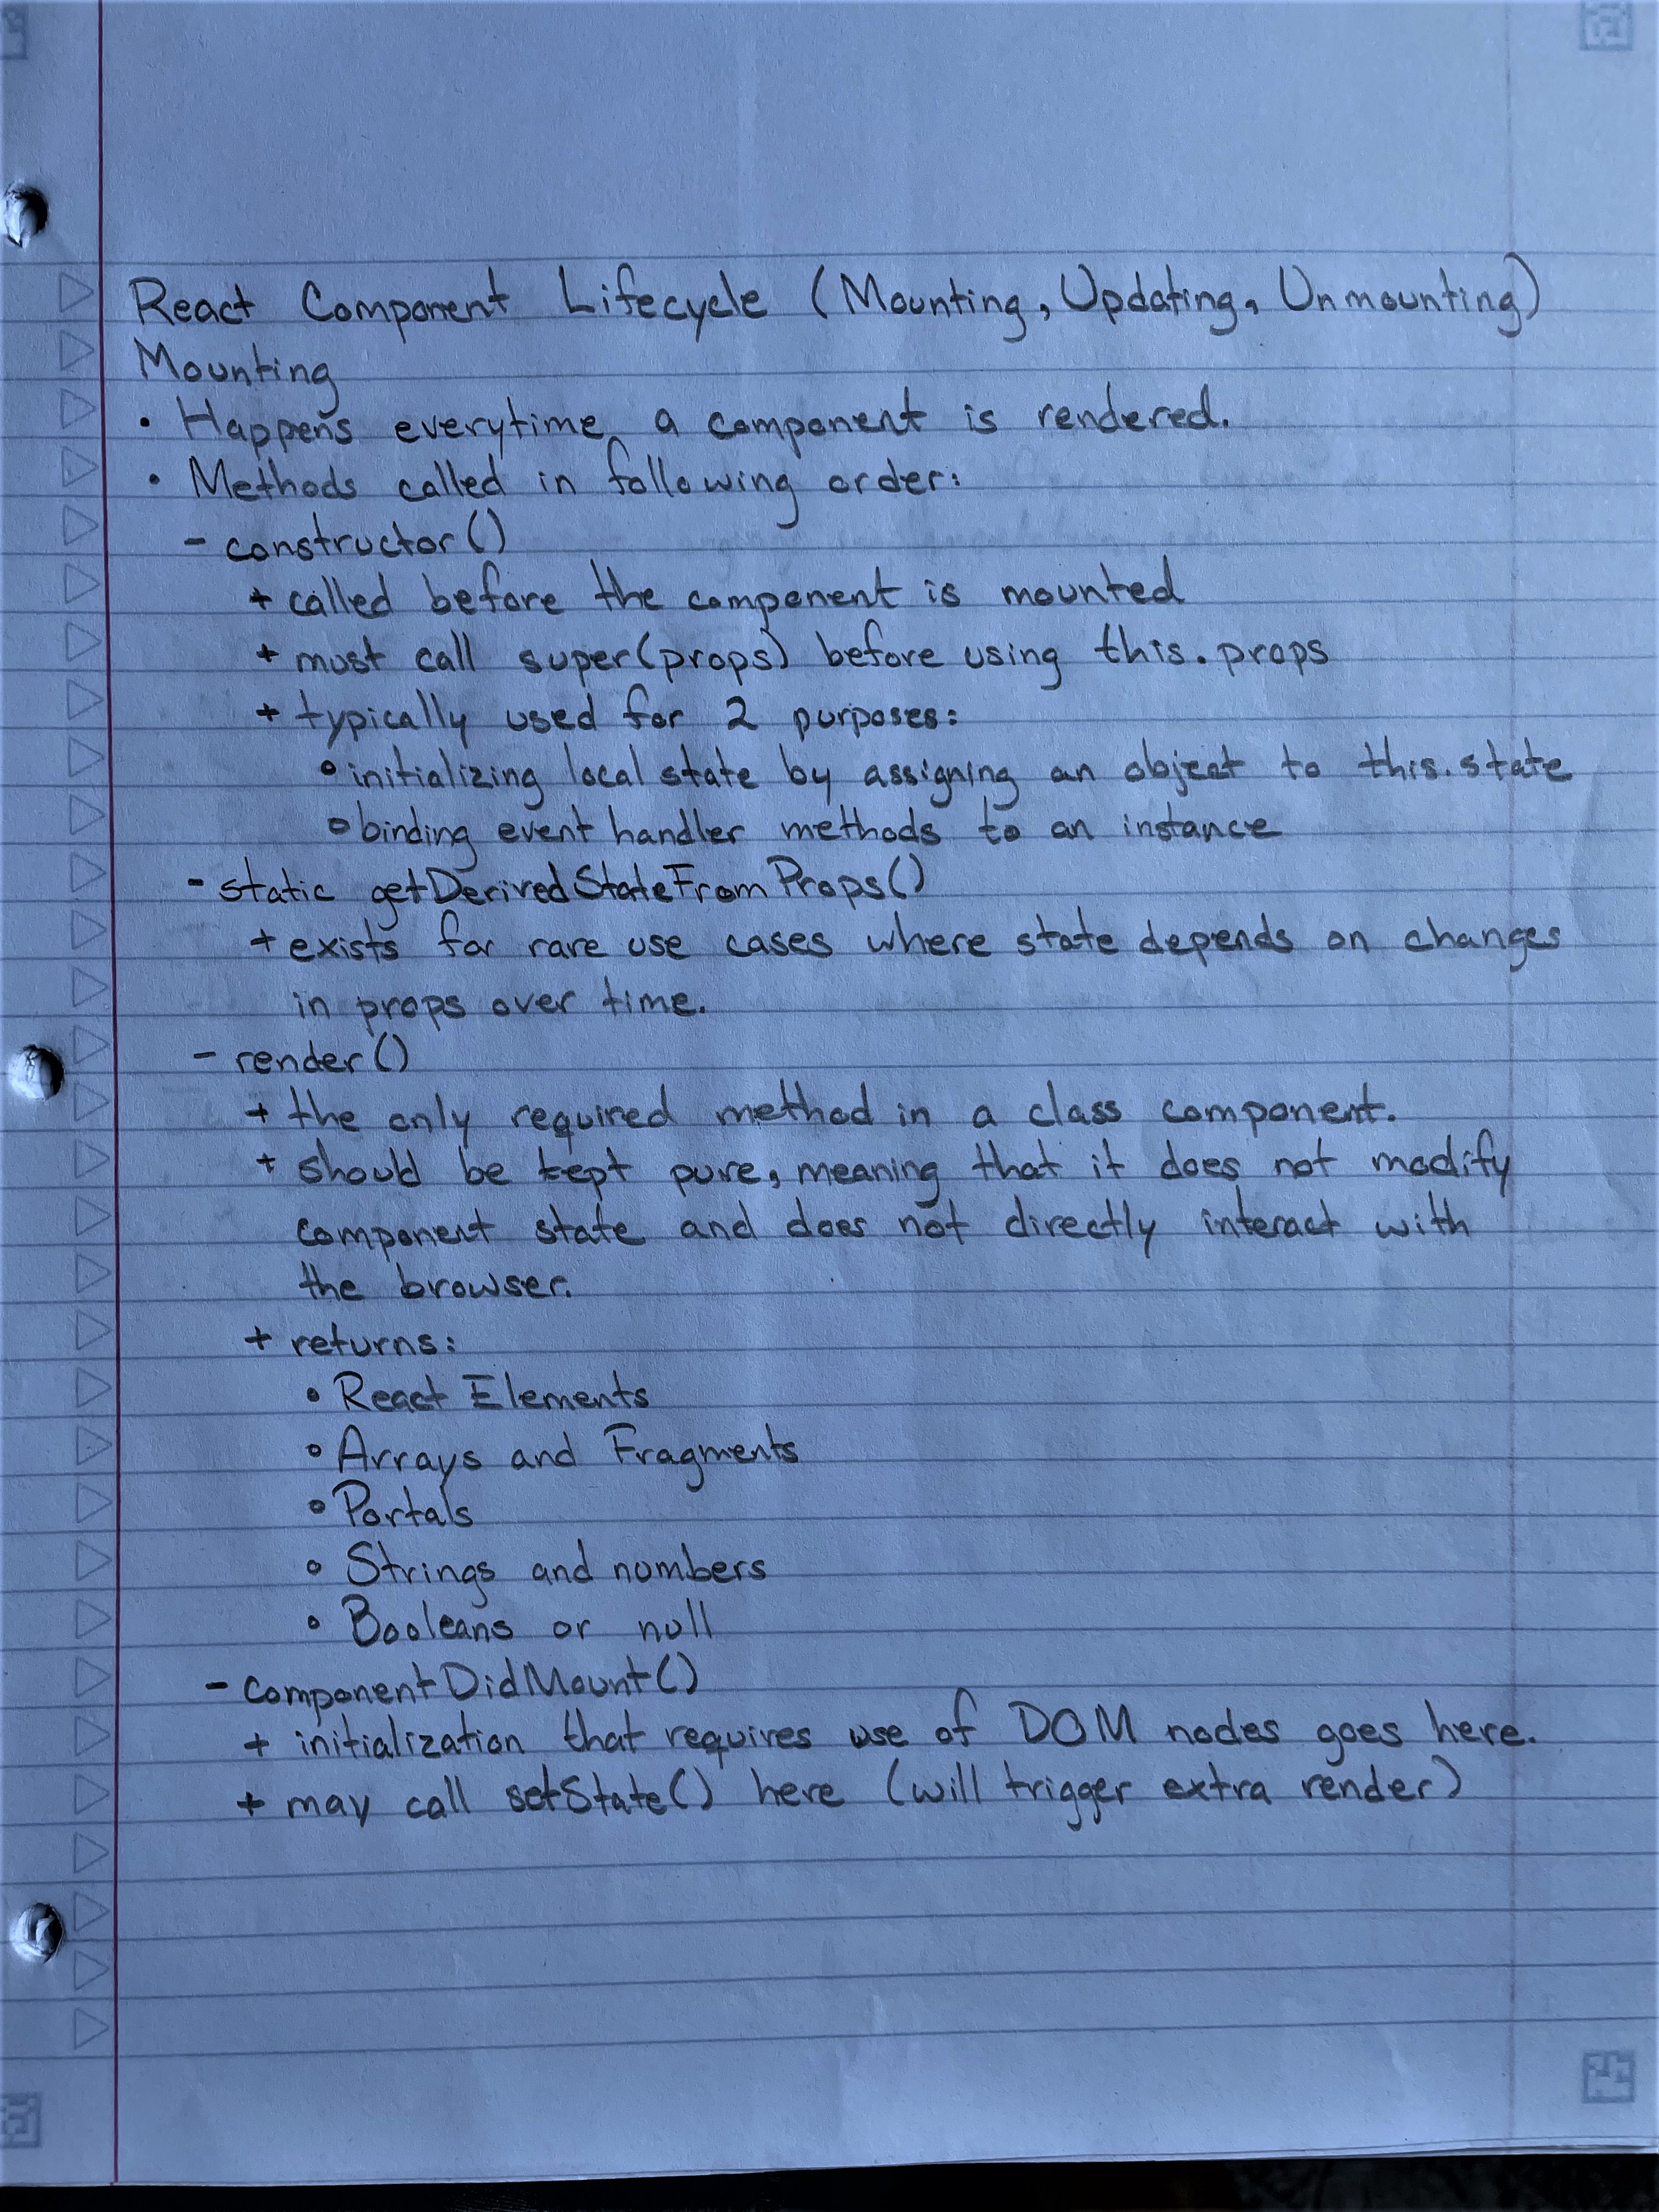 React Component Lifecycle (Mounting, Updating, Unmounting)
Mounting
• Happens everytime a component is rendered.
• Methods called in following order:
- constructor()
+ called before the component is mounted
+ must call super(props) before using this.props
+ typically used for 2 purposes:
• initializing local state by assigning an object to this.state
• binding event handler methods to an instance
- static getDerivedStateFromProps()
+ exists for rare use cases where state depends on changes
in props over time.
- render()
+ the only required method in a class component.
+ should be kept pure, meaning that it does not modify
component state and does not directly interact with
the browser.
+ returns:
• React Elements
• Arrays and Fragments
• Portals
• Strings and numbers
• Booleans or null
- componentDidMount()
+ initialization that requires use of DOM nodes goes here.
+ may call setState() here (will trigger extra render)